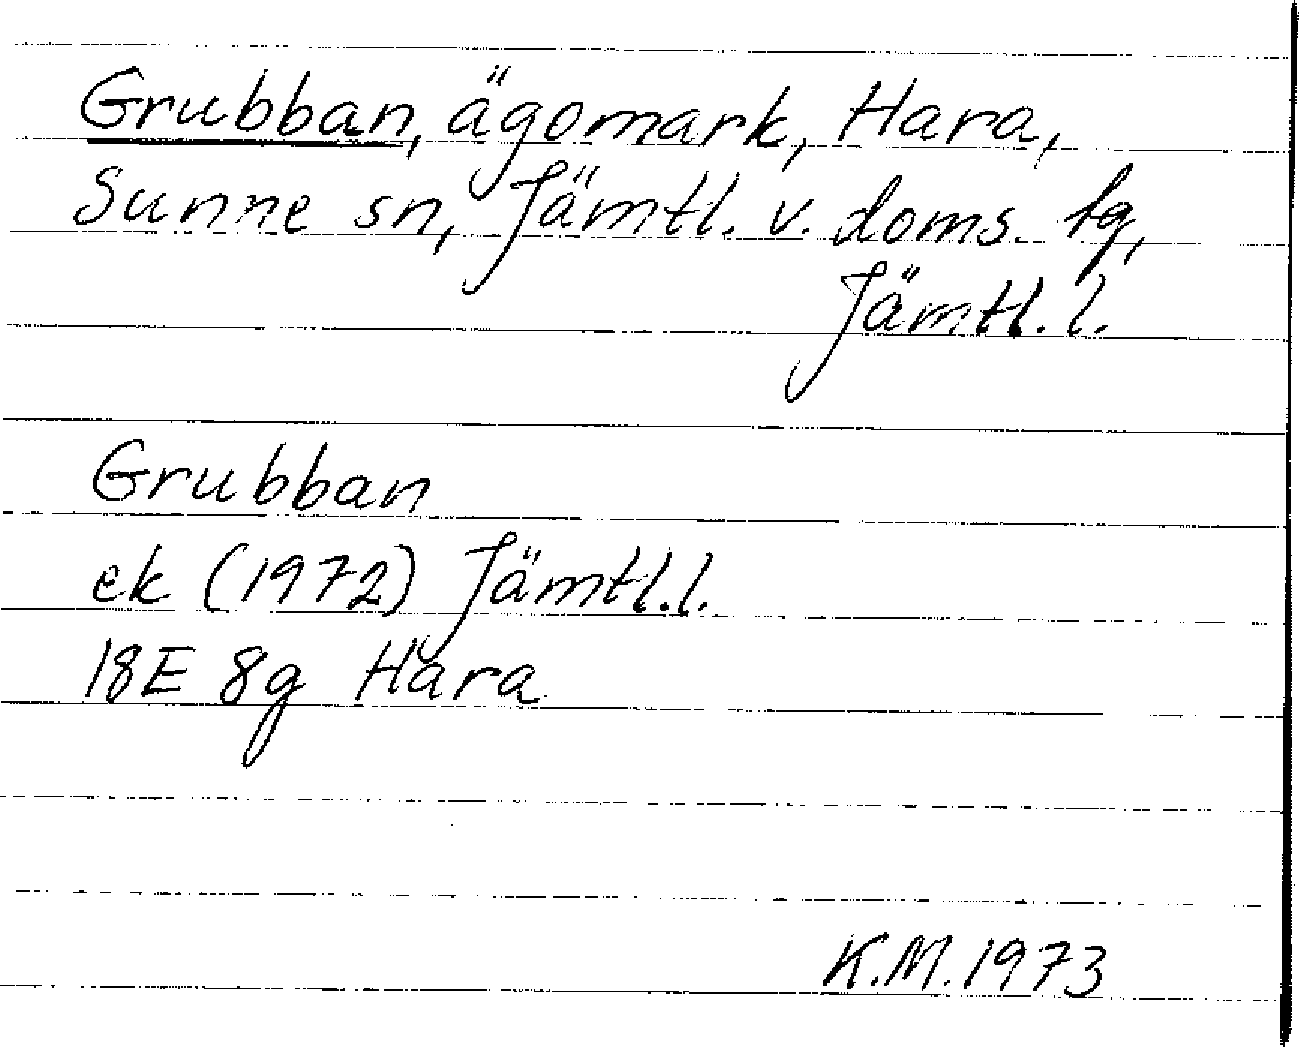 Grubban, ägomark, Hara,
Sunne sn, Jämtl. v. doms. tg,
Jämtl. l.
Grubban
ek (1972) Jämtl. l.
18E 8g Hara
K.M. 1973